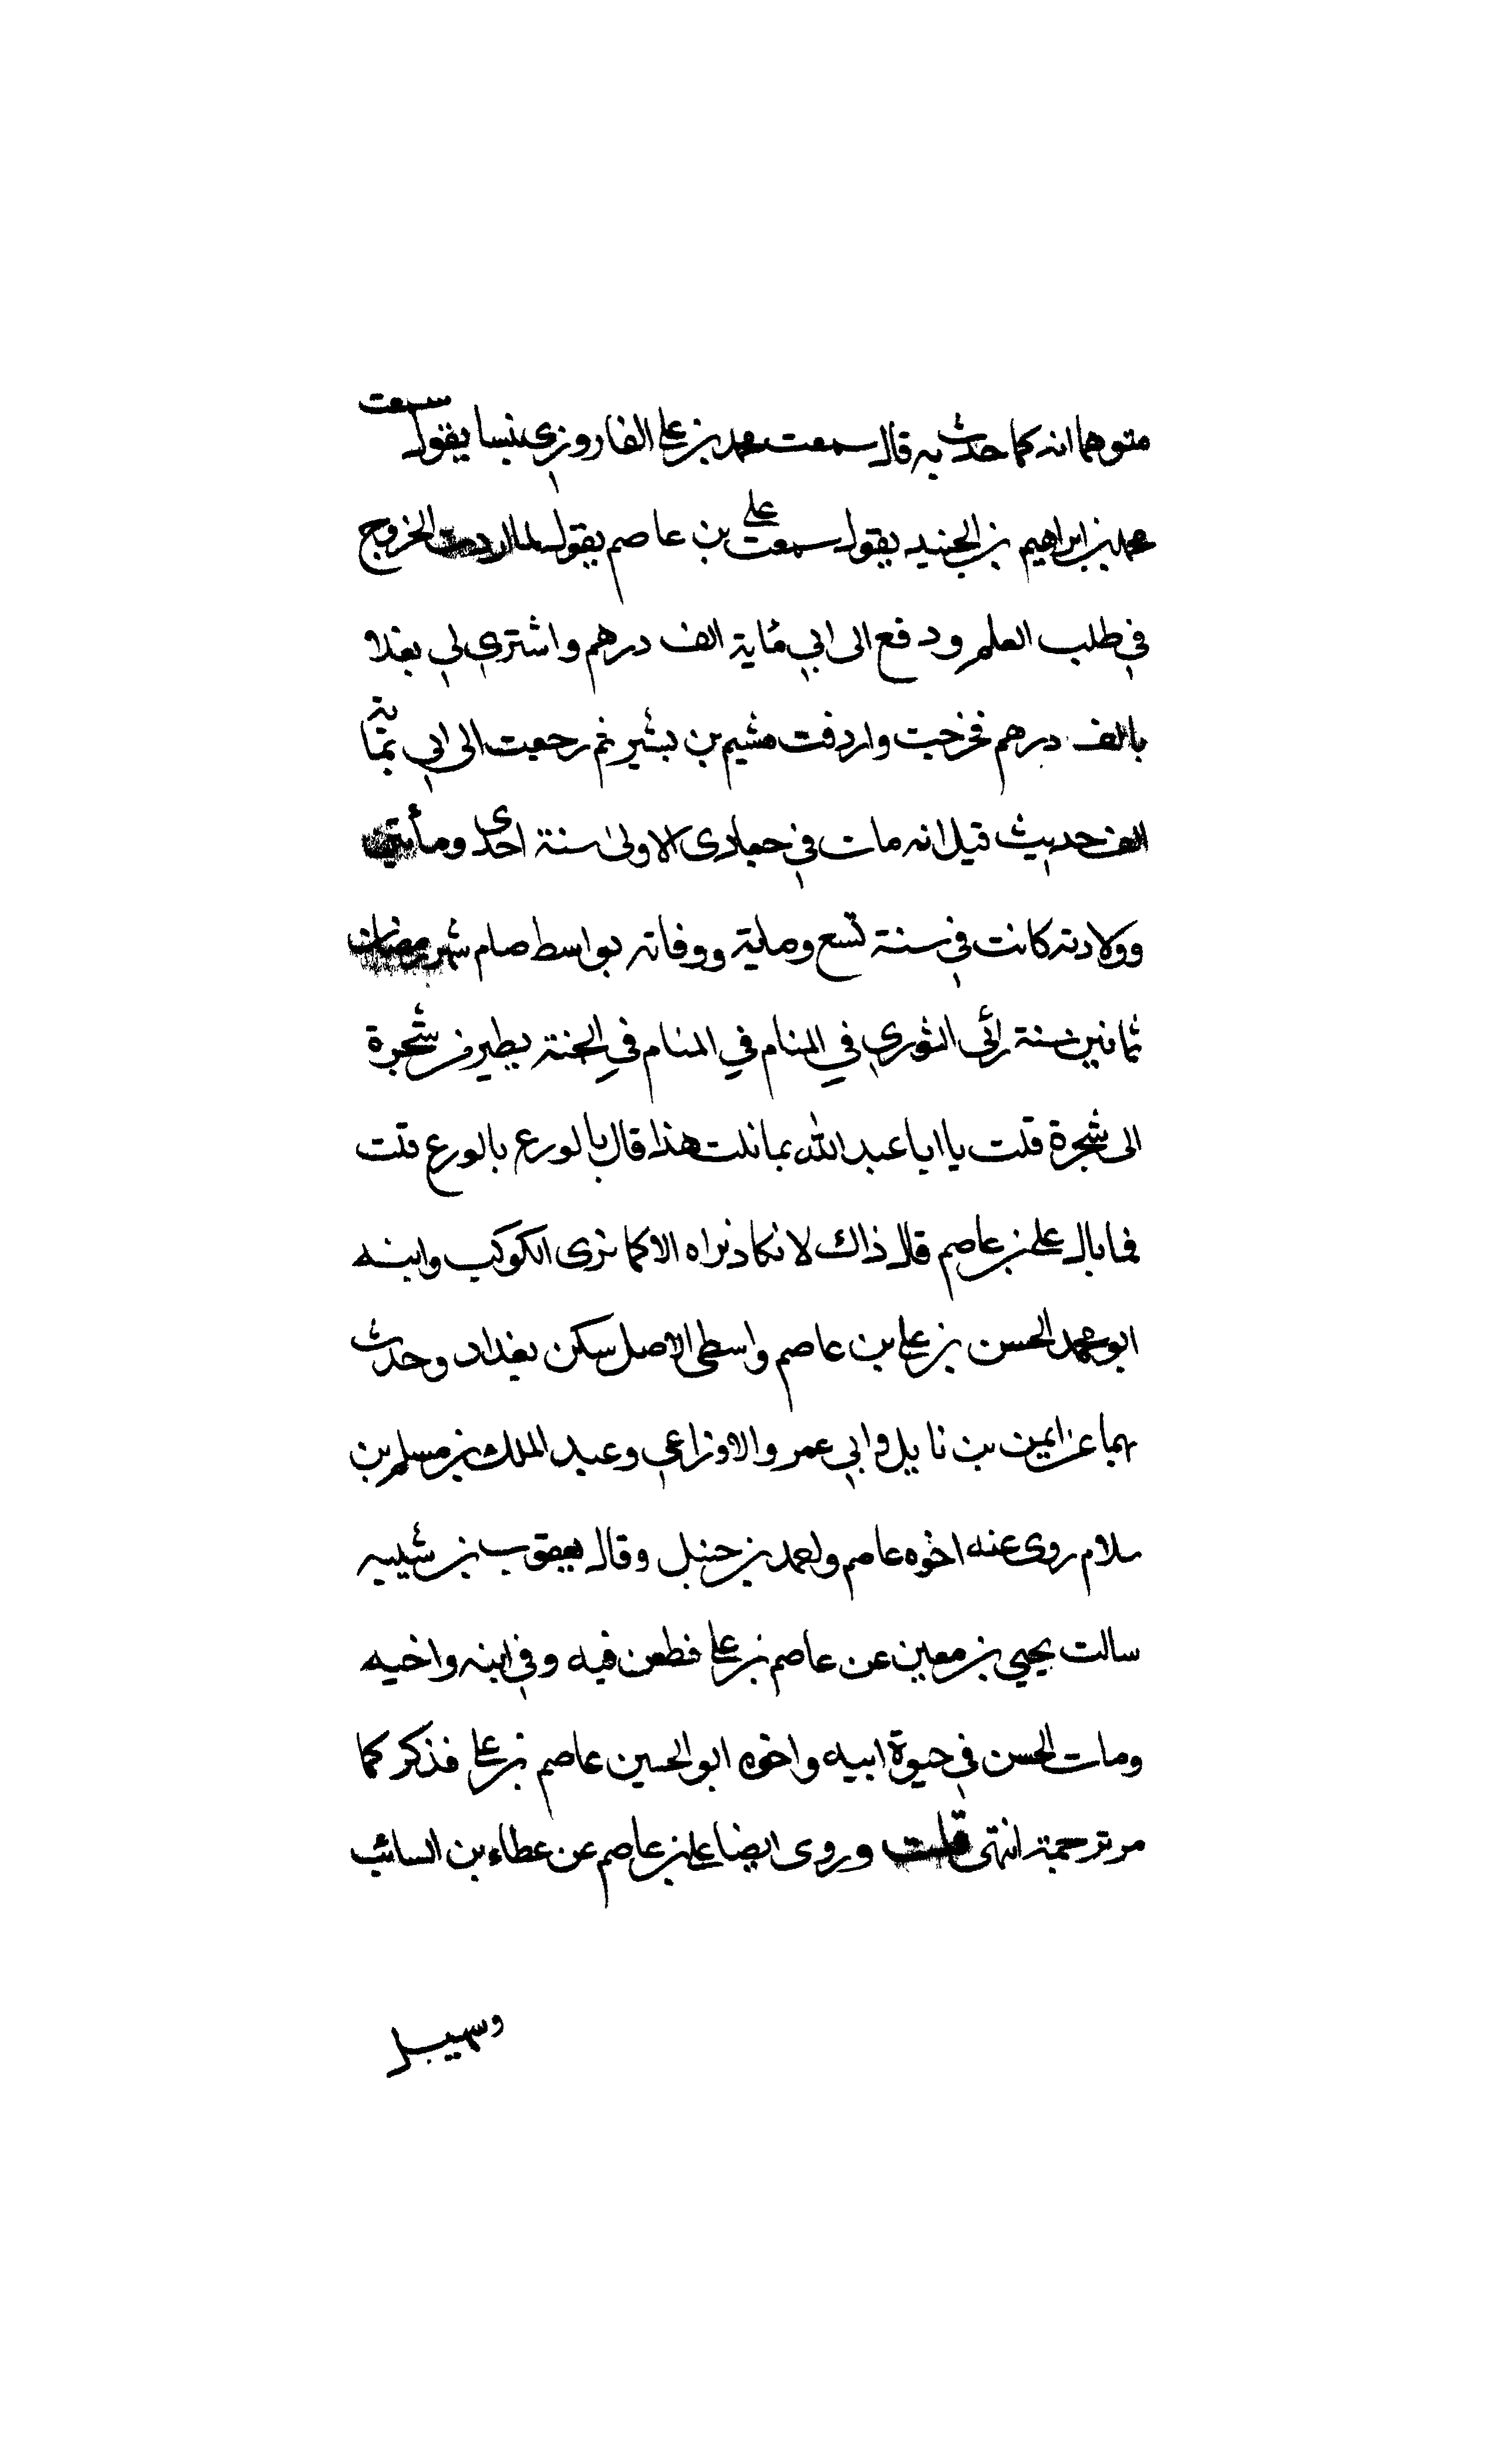 متوهما انه كما حدث به قال سمعت محمد بن علي الفاروزي بنسا يقول سمعت
محمد بن ابراهيم بن الجنيد يقول سمعت علي بن عاصم يقول لما اردت الخروج
في طلب العلم ودفع الى ابي مُاية الف درهم واشتري لي بغلا
بالف درهم فخرجت واردفت هشيم بن بشير ثم رجعت الى ابي بمُاية
الف حديث قيل انه مات في جمادى الاولى سنة احدى ومأتين
وولادته كانت في سنة تسع وماية ووفاته بواسط صام شهر رمضان
ثمانين سنة رأئى الثوري في المنام في المنام في الجنة يطير من شجرة
الى شجرة قلت يا ابا عبد الله بما نلت هذا قال بالورع بالورع قلت
فما بال علي بن عاصم قال ذاك لا نكاد نراه الا كما نرى الكوكب وابنه
ابو محمد الحسن بن علي بن عاصم واسطي الاصل سكن بغداد وحدث
بهما عن ايمن بن نايل وابي عمرو الاوزاعي وعبد الملك بن مسلم بن
سلام روى عنه اخوه عاصم واحمد بن حنبل وقال يعقوب بن شيبه
سالت يحيي بن معين عن عاصم بن علي فطعن فيه وفي ابنه واخيه
ومات الحسن في حيوة ابيه واخوه ابو الحسين عاصم بن علي فذكر كما
مر ترجمته انتهى قلت وروى ايضا علي بن عاصم عن عطاء بن السائب
وسهيل